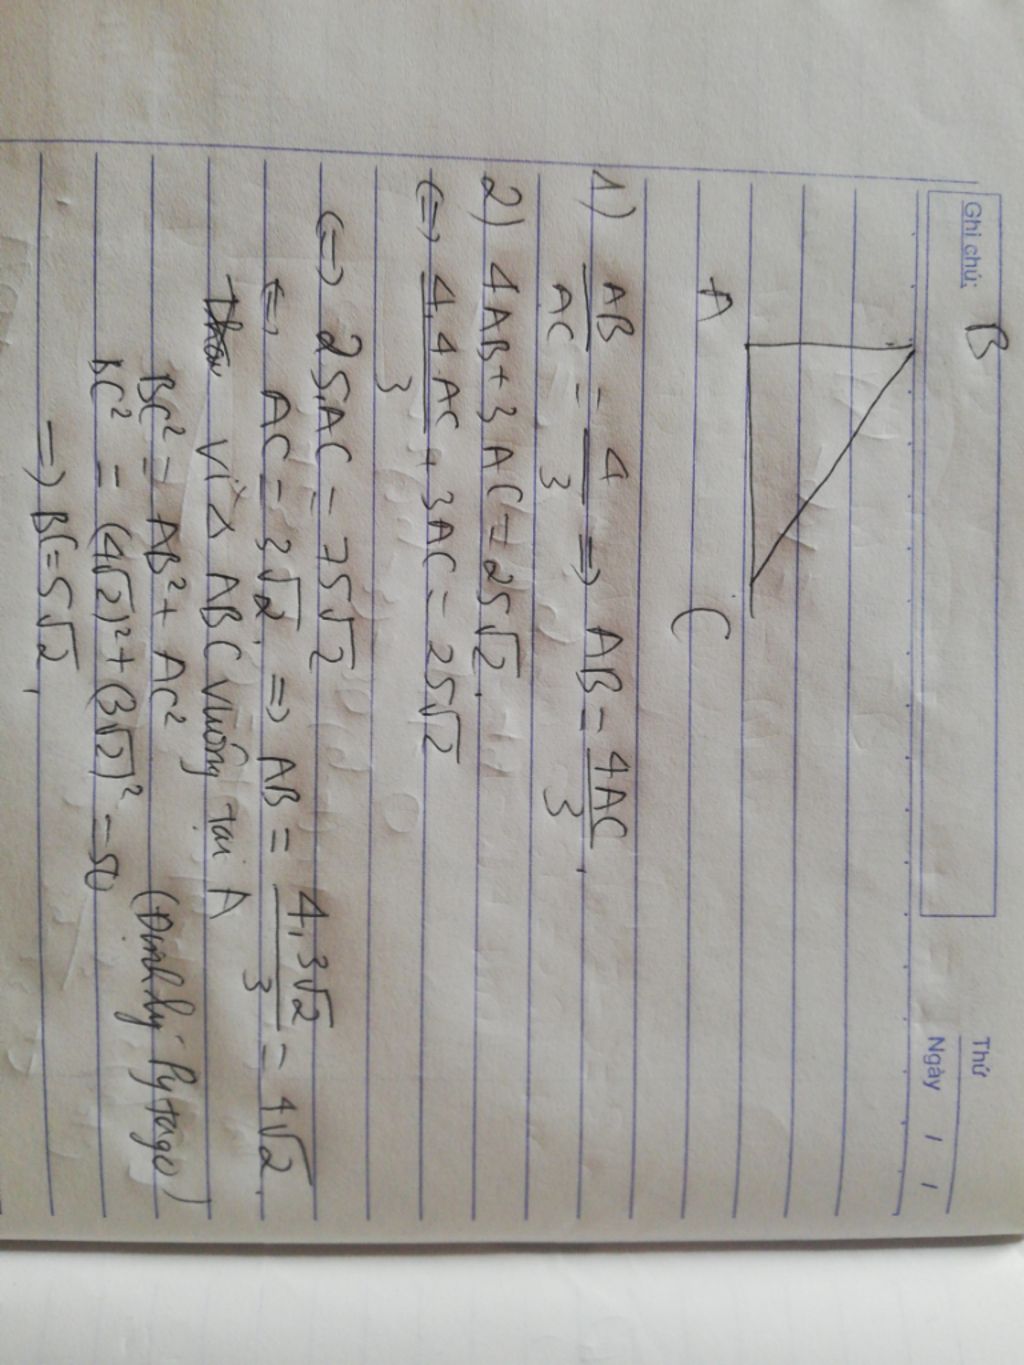 Ghi chú:
Thứ
Ngày / /
B
A
C
1) AB/AC = 4/3 => AB = 4AC/3.
2) 4AB + 3AC = 25√2.
<=> 4.4AC/3 + 3AC = 25√2
<=> 25.AC = 75√2
<=> AC = 3√2. => AB = 4.3√2/3 = 4√2.
Vì Δ ABC vuông tại A
BC² = AB² + AC² (Định lý Pytago)
BC² = (4√2)² + (3√2)² = 50
=> BC = 5√2.